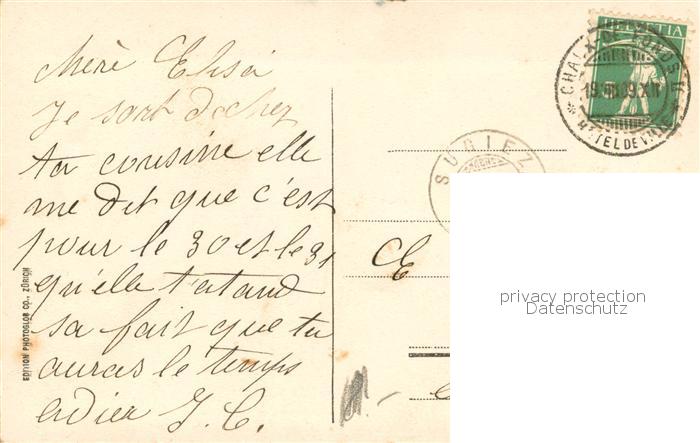 Chère Elisa
Je sort de chez
ta cousine elle
me dit que c'est
pour le 30 et le 31
qu'elle t'atand
sa fait que tu
auras le temps
adieu J. C.
EDITION PHOTOGLOB CO., ZÜRICH
HELVETIA
CHAUX-DE-FONDS
HOTEL DE VILLE
SUGIEZ
privacy protection
Datenschutz